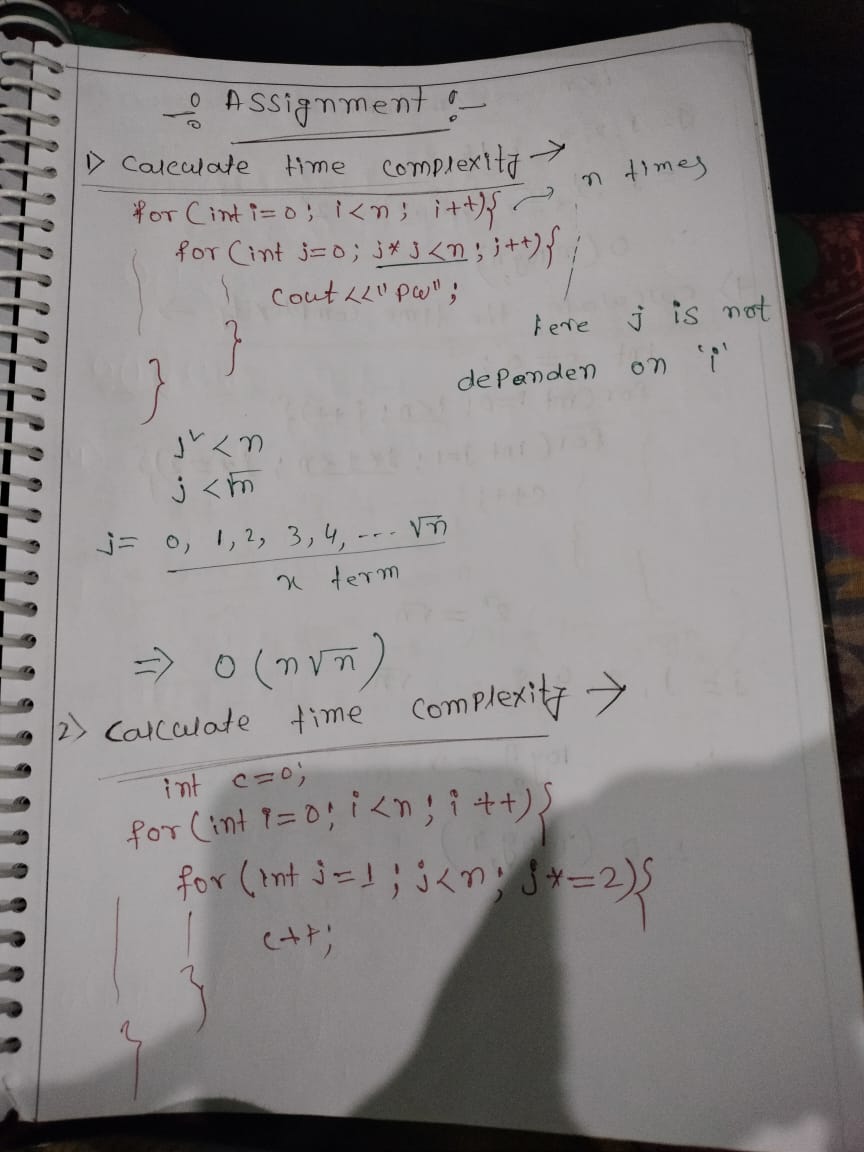 ÷ Assignment :-
1) Calculate time complexity →
n times
for (int i=0; i<n; i++){
for (int j=0; j*j<n; j++){
cout<<"PW";
}
here j is not
dependen on 'i'
}
j² < n
j < √n
j= 0, 1, 2, 3, 4, --- √n
x term
⇒ O(n√n)
2) Calculate time complexity →
int c=0;
for (int i=0; i<n; i++){
for (int j=1; j<n; j*=2){
c++;
}
}